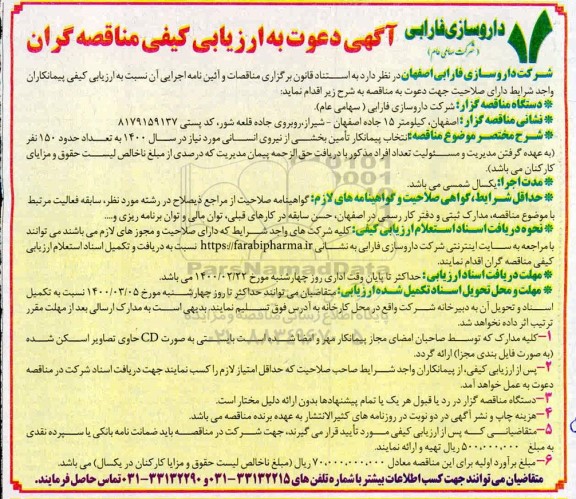 داروسازی فارابی
(شرکت سهامی عام)
آگهی دعوت به ارزیابی کیفی مناقصه گران
شرکت داروسازی فارابی اصفهان در نظر دارد به استناد قانون برگزاری مناقصات و آئین نامه اجرایی آن نسبت به ارزیابی کیفی پیمانکاران
واجد شرایط دارای صلاحیت جهت دعوت به مناقصه به شرح زیر اقدام نماید:
*دستگاه مناقصه گزار: شرکت داروسازی فارابی ( سهامی عام).
*نشانی مناقصه گزار: اصفهان، کیلومتر ۱۵ جاده اصفهان - شیراز،روبروی جاده قلعه شور، کد پستی ۸۱۷۹۱۵۹۱۳۷
*شرح مختصر موضوع مناقصه: انتخاب پیمانکار تأمین بخشی از نیروی انسانی مورد نیاز در سال ۱۴۰۰ به تعداد حدود ۱۵۰ نفر
(به عهده گرفتن مدیریت و مسئولیت تعداد افراد مذکور با دریافت حق الزحمه پیمان مدیریت که درصدی از مبلغ ناخالص لیست حقوق و مزایای
کارکنان می باشد).
*مدت اجرا: یکسال شمسی می باشد.
*حداقل شرایط، گواهی صلاحیت و گواهینامه های لازم: گواهینامه صلاحیت از مراجع ذیصلاح در رشته مورد نظر، سابقه فعالیت مرتبط
با موضوع مناقصه، مدارک ثبتی و دفتر کار رسمی در اصفهان، حسن سابقه در کارهای قبلی، توان مالی و توان برنامه ریزی و....
*نحوه دریافت اسناد استعلام ارزیابی کیفی: کلیه شرکت های واجد شرایط که دارای صلاحیت و مجوز های لازم می باشند می توانند
با مراجعه به سایت اینترنتی شرکت داروسازی فارابی به نشانی https://farabipharma.ir نسبت به دریافت و تکمیل اسناد استعلام ارزیابی
کیفی مناقصه گران اقدام نمایند.
*مهلت دریافت اسناد ارزیابی: حداکثر تا پایان وقت اداری روز چهارشنبه مورخ ۱۴۰۰/۰۲/۲۲ می باشد.
*مهلت و محل تحویل اسناد تکمیل شده ارزیابی: متقاضیان می توانند حداکثر تا روز چهارشنبه مورخ ۱۴۰۰/۰۳/۰۵ نسبت به تکمیل
اسناد و تحویل آن به دبیرخانه شرکت واقع در محل کارخانه به آدرس فوق تسلیم نمایند. بدیهی است به مدارک ارسالی بعد از مهلت مقرر
ترتیب اثر داده نخواهد شد.
۱-کلیه مدارک که توسط صاحبان امضای مجاز پیمانکار مهر و امضا شده است بایستی به صورت CD حاوی تصاویر اسکن شده
(به صورت فایل بندی مجزا) ارائه گردد.
۲-پس از ارزیابی کیفی، از پیمانکاران واجد شرایط صاحب صلاحیت که حداقل امتیاز لازم را کسب نمایند جهت دریافت اسناد شرکت در مناقصه
دعوت به عمل خواهد آمد.
۳-دستگاه مناقصه گزار در رد یا قبول هر یک یا تمام پیشنهادها بدون ارائه دلیل مختار است.
۴-هزینه چاپ و نشر آگهی در دو نوبت در روزنامه های کثیرالانتشار به عهده برنده مناقصه می باشد.
۵-متقاضیانی که پس از ارزیابی کیفی مورد تأیید قرار می گیرند، جهت شرکت در مناقصه باید ضمانت نامه بانکی یا سپرده نقدی
به مبلغ ۵۰۰,۰۰۰,۰۰۰ ریال تهیه و ارائه نمایند.
۶-مبلغ برآورد اولیه برای این مناقصه معادل ۷۰,۰۰۰,۰۰۰,۰۰۰ ریال (مبلغ ناخالص لیست حقوق و مزایا کارکنان در یکسال) می باشد.
متقاضیان می توانند جهت کسب اطلاعات بیشتر با شماره تلفن های ۳۳۱۳۲۲۱۵-۰۳۱ و ۳۳۱۳۲۲۹۰-۰۳۱ تماس حاصل فرمایند.